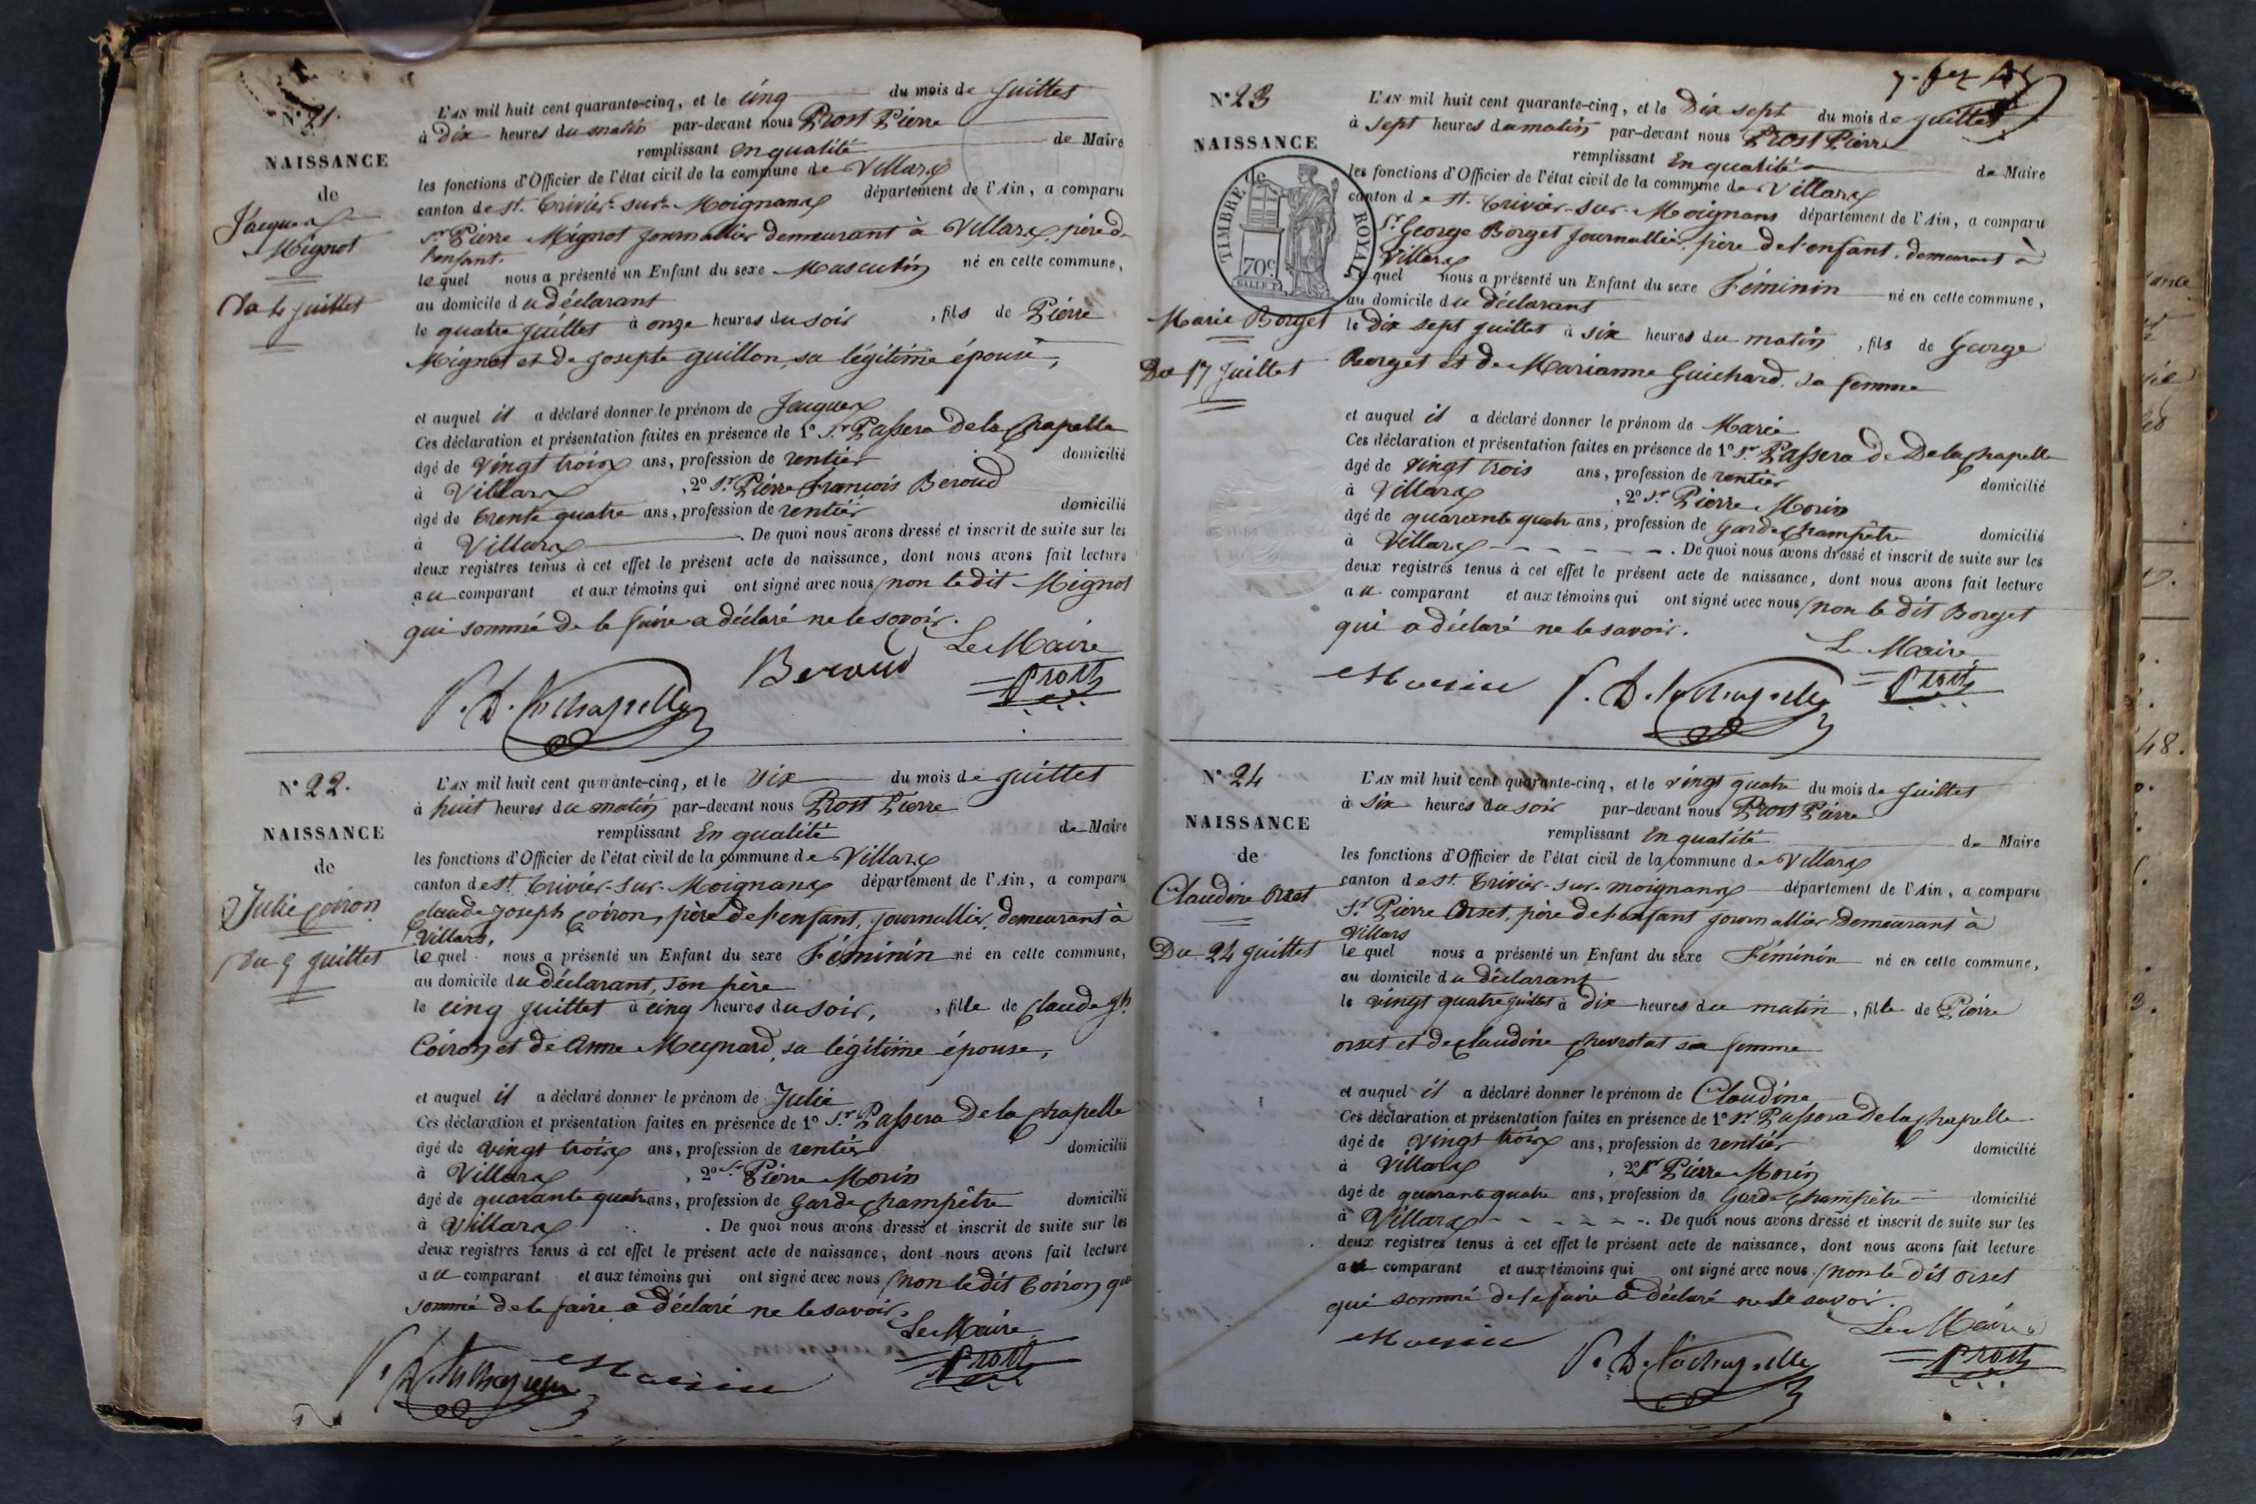 N° 21.
NAISSANCE
de
Jacques
Mignot
Du 4 juillet
L'AN mil huit cent quarante-cinq, et le cinq du mois de juillet
à Dix heures du matin par-devant nous Prost Pierre
remplissant en qualité de Maire
les fonctions d'Officier de l'état civil de la commune de Villars
canton de St. Trivier-sur-Moignans département de l'Ain, a comparu
Sr. Pierre Mignot journallier demeurant à Villars, père de
l'enfant.
lequel nous a présenté un Enfant du sexe Masculin né en cette commune,
au domicile du déclarant
le quatre juillet à onze heures du soir, fils de Pierre
Mignot et de Josepte Guillon, sa légitime épouse,
et auquel il a déclaré donner le prénom de Jacques
Ces déclaration et présentation faites en présence de 1° Sr. Passera De la Chapelle
âgé de vingt trois ans, profession de rentier domicilié
à Villars, 2° Sr. Pierre François Beroud
âgé de trente quatre ans, profession de rentier domicilié
à Villars. De quoi nous avons dressé et inscrit de suite sur les
deux registres tenus à cet effet le présent acte de naissance, dont nous avons fait lecture
au comparant et aux témoins qui ont signé avec nous, non le dit Mignot
qui sommé de le faire a déclaré ne le savoir.
Le Maire
P. D. Lachapelle Beroud Prost
N° 22.
NAISSANCE
de
Julie Coiron
Du 5 juillet
L'AN mil huit cent quarante-cinq, et le six du mois de juillet
à huit heures du matin par-devant nous Prost Pierre
remplissant En qualité de Maire
les fonctions d'Officier de l'état civil de la commune de Villars
canton de St. Trivier-sur-Moignans département de l'Ain, a comparu
Claude Joseph Coiron, père de l'enfant, journallier, demeurant à
Villars,
lequel nous a présenté un Enfant du sexe Féminin né en cette commune,
au domicile du déclarant, son père
le cinq juillet à cinq heures du soir, fille de Claude Jh.
Coiron et de Anne Meynard, sa légitime épouse,
et auquel il a déclaré donner le prénom de Julie
Ces déclaration et présentation faites en présence de 1° Sr. Passera De la Chapelle
âgé de vingt trois ans, profession de rentier domicilié
à Villars, 2° Sr. Pierre Morin
âgé de quarante quatre ans, profession de Garde Champêtre domicilié
à Villars. De quoi nous avons dressé et inscrit de suite sur les
deux registres tenus à cet effet le présent acte de naissance, dont nous avons fait lecture
au comparant et aux témoins qui ont signé avec nous, non le dit Coiron qui
sommé de le faire a déclaré ne le savoir.
Le Maire
P. D. Lachapelle Morin Prost
N° 23
NAISSANCE
de
TIMBRE ROYAL
70c.
Marie Borget
Du 17 juillet
L'AN mil huit cent quarante-cinq, et le Dix sept du mois de juillet
à sept heures du matin par-devant nous Prost Pierre
remplissant En qualité de Maire
les fonctions d'Officier de l'état civil de la commune de Villars
canton de St. Trivier-sur-Moignans département de l'Ain, a comparu
Sr. George Borget journallier, père de l'enfant, demeurant à
Villars
lequel nous a présenté un Enfant du sexe Féminin né en cette commune,
au domicile du déclarant
le Dix sept juillet à six heures du matin, fils de George
Borget et de Marianne Guichard, sa femme
et auquel il a déclaré donner le prénom de Marie
Ces déclaration et présentation faites en présence de 1° Sr. Passera de De la Chapelle
âgé de vingt trois ans, profession de rentier domicilié
à Villars, 2° Sr. Pierre Morin
âgé de quarante quatre ans, profession de Garde Champêtre domicilié
à Villars. De quoi nous avons dressé et inscrit de suite sur les
deux registres tenus à cet effet le présent acte de naissance, dont nous avons fait lecture
au comparant et aux témoins qui ont signé avec nous, non le dit Borget
qui a déclaré ne le savoir.
Le Maire
Morin P. D. Lachapelle Prost
N° 24
NAISSANCE
de
Claudine Orset
Du 24 juillet
L'AN mil huit cent quarante-cinq, et le vingt quatre du mois de juillet
à six heures du soir par-devant nous Prost Pierre
remplissant En qualité de Maire
les fonctions d'Officier de l'état civil de la commune de Villars
canton de St. Trivier-sur-moignans département de l'Ain, a comparu
Sr. Pierre Orset, père de l'enfant journallier Demeurant à
Villars
lequel nous a présenté un Enfant du sexe Féminin né en cette commune,
au domicile du déclarant
le vingt quatre juillet à dix heures du matin, fille de Pierre
orset et de Claudine Chevrotat sa femme
et auquel il a déclaré donner le prénom de Claudine
Ces déclaration et présentation faites en présence de 1° Sr. Passera De la Chapelle
âgé de vingt trois ans, profession de rentier domicilié
à Villars, 2° Sr. Pierre Morin
âgé de quarante quatre ans, profession de Garde Champêtre domicilié
à Villars. De quoi nous avons dressé et inscrit de suite sur les
deux registres tenus à cet effet le présent acte de naissance, dont nous avons fait lecture
au comparant et aux témoins qui ont signé avec nous, non le dit orset
qui sommé de le faire a déclaré ne le savoir.
Le Maire
Morin P. D. Lachapelle Prost
48.